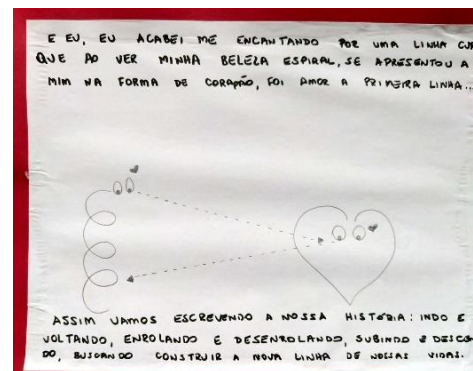 E EU, EU ACABEI ME ENCANTANDO POR UMA LINHA
QUE AO VER MINHA BELEZA ESPIRAL, SE APRESENTOU A
MIM NA FORMA DE CORAÇÃO, FOI AMOR A PRIMEIRA LINHA...
ASSIM VAMOS ESCREVENDO A NOSSA HISTÓRIA: INDO E
VOLTANDO, ENROLANDO E DESENROLANDO, SUBINDO E
DO, BUSCANDO CONSTRUIR A NOVA LINHA DE NOSSAS VIDAS.